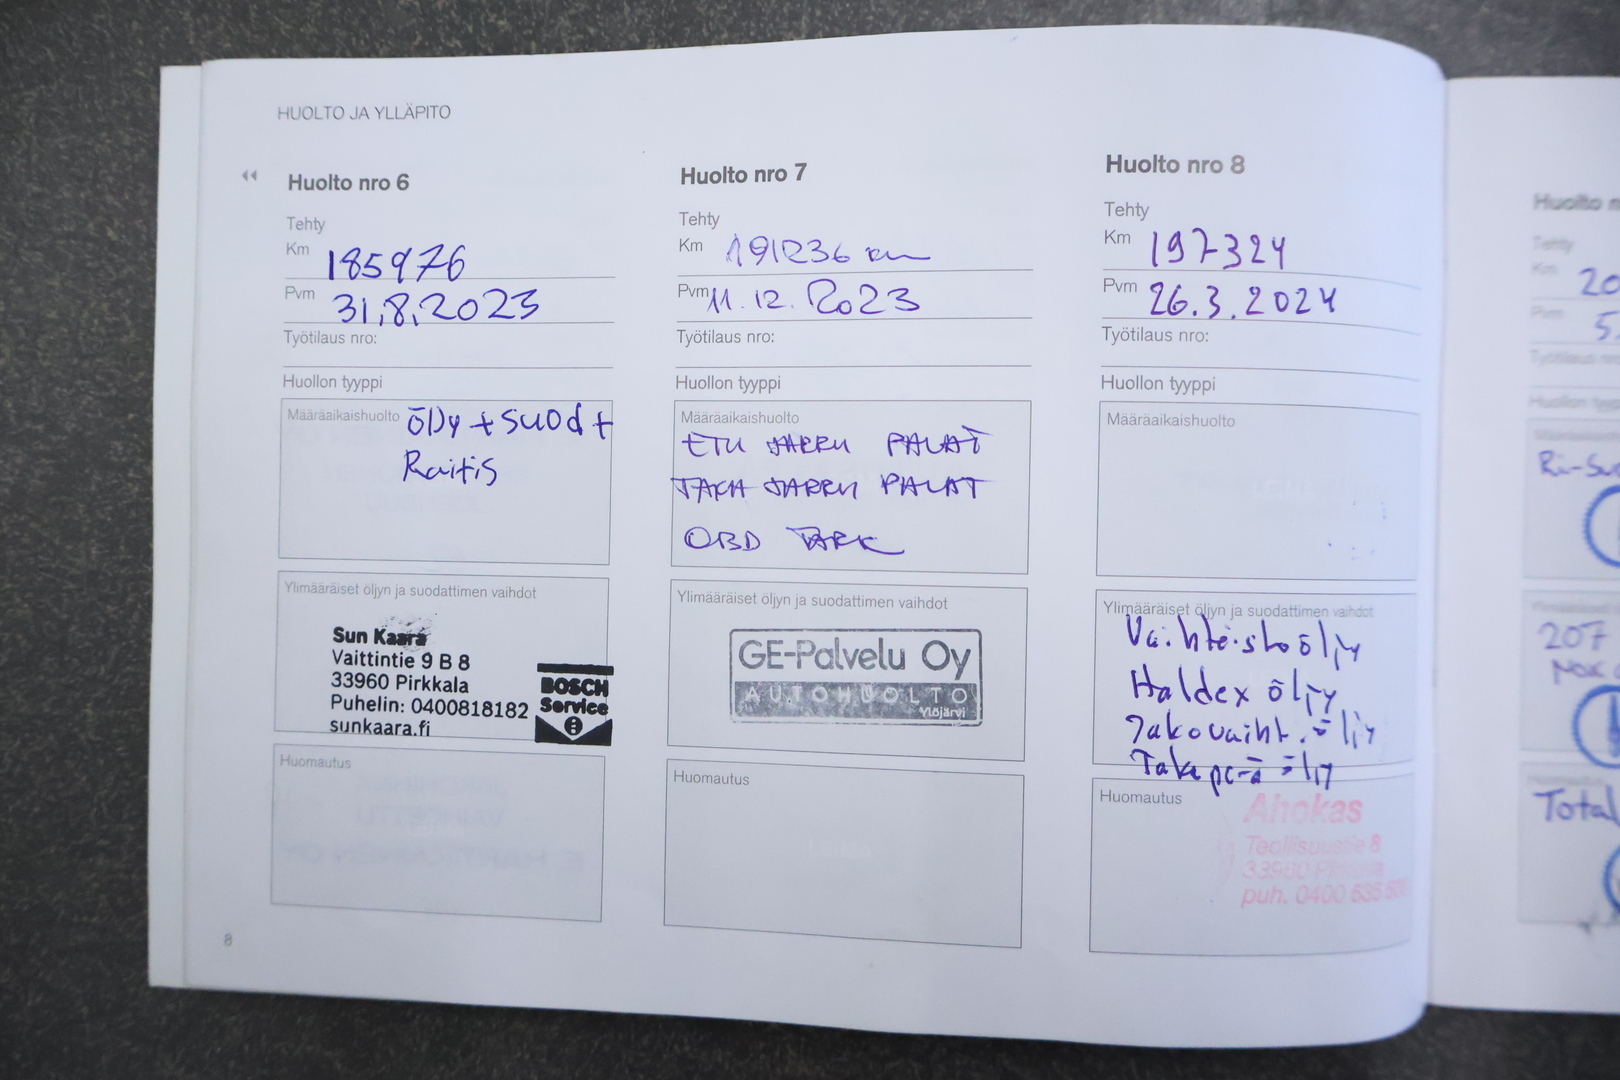 HUOLTO JA YLLÄPITO
Huolto nro 6
Tehty
Km 185976
Pvm 31.8.2023
Työtilaus nro:
Huollon tyyppi
Määräaikaishuolto öljy + suodt
Raitis
Ylimääräiset öljyn ja suodattimen vaihdot
Sun Kaara
Vaittintie 9 B 8
33960 Pirkkala
Puhelin: 0400818182
sunkaara.fi
BOSCH
Service
Huomautus
8
Huolto nro 7
Tehty
Km 191236 km
Pvm 11.12.2023
Työtilaus nro:
Huollon tyyppi
Määräaikaishuolto
ETU JARRU PALAT
TAKA JARRU PALAT
OBD TARK
Ylimääräiset öljyn ja suodattimen vaihdot
GE-Palvelu Oy
AUTOHUOLTO
Ylöjärvi
Huomautus
Huolto nro 8
Tehty
Km 197324
Pvm 26.3.2024
Työtilaus nro:
Huollon tyyppi
Määräaikaishuolto
Ylimääräiset öljyn ja suodattimen vaihdot
Vaihteistoöljy
Haldex öljy
Jakovaiht. öljy
Takaperä öljy
Huomautus
Ahokas
Teollisuustie 8
33960 Pirkkala
puh. 0400 636
Huolto n
Tehty
Km 20
Pvm 5.
Työtilaus nro
Huollon tyyp
207
Total